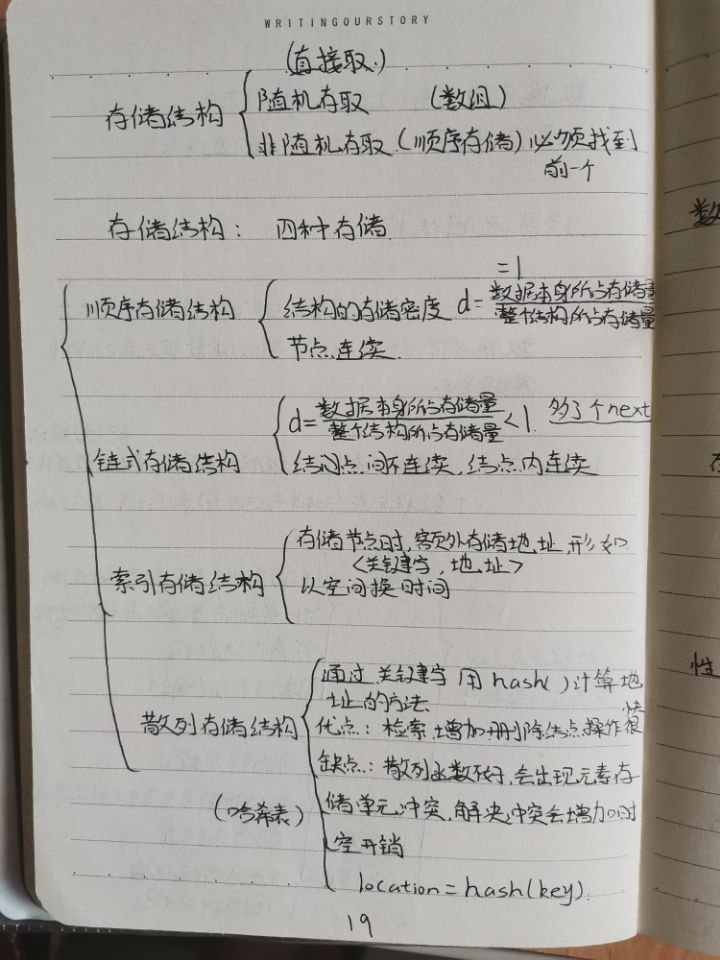 WRITINGOURSTORY
(直接取)
存储结构 随机存取 (数组)
非随机存取 (顺序存储) 必须找到
前一个
存储结构: 四种存储
=1
顺序存储结构 结构的存储密度 d=数据本身所占存储量
整个结构所占存储量
节点连续
d=数据本身所占存储量/整个结构所占存储量<1 多了个next
链式存储结构
结点间不连续, 结点内连续
存储节点时, 额外存储地址, 形如
<关键字, 地址>
索引存储结构
以空间换时间
通过关键字用hash( )计算地
址的方法.
散列存储结构 优点: 检索, 增加, 删除结点操作很
快
缺点: 散列函数不好, 会出现元素存
(哈希表) 储单元冲突, 解决冲突会增加时
空开销
location=hash(key).
19
数
存
性